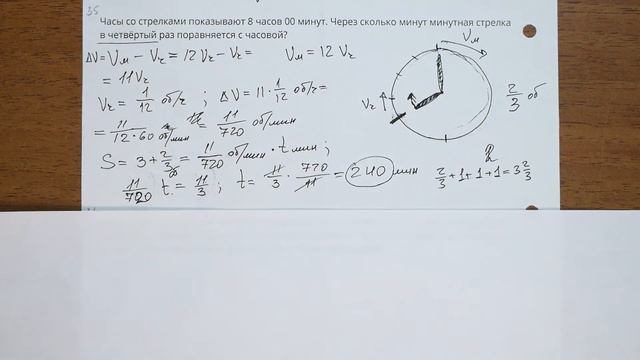 35
Часы со стрелками показывают 8 часов 00 минут. Через сколько минут минутная стрелка
в четвёртый раз поравняется с часовой?
ΔV = Vм − Vг = 12 Vг − Vг = Vм = 12 Vг
= 11 Vг
Vг = 1/12 об/г ; ΔV = 11 · 1/12 об/г =
= 11/(12·60) об/мин = 11/720 об/мин
S = 3 + 2/3 = 11/720 об/мин · t мин ;
11/720 t = 11/3 ; t = 11/3 · 720/11 = 240 мин
Vм
Vг
2/3 об
2
2/3 + 1 + 1 + 1 = 3 2/3